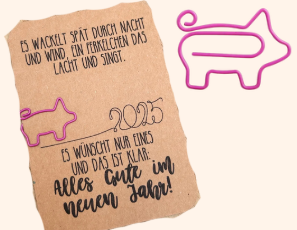 ES WACKELT SPÄT DURCH NACHT
UND WIND, EIN FERKELCHEN DAS
LACHT UND SINGT.
2025
ES WÜNSCHT NUR EINES
UND DAS IST KLAR:
Alles Gute im
neuen Jahr!